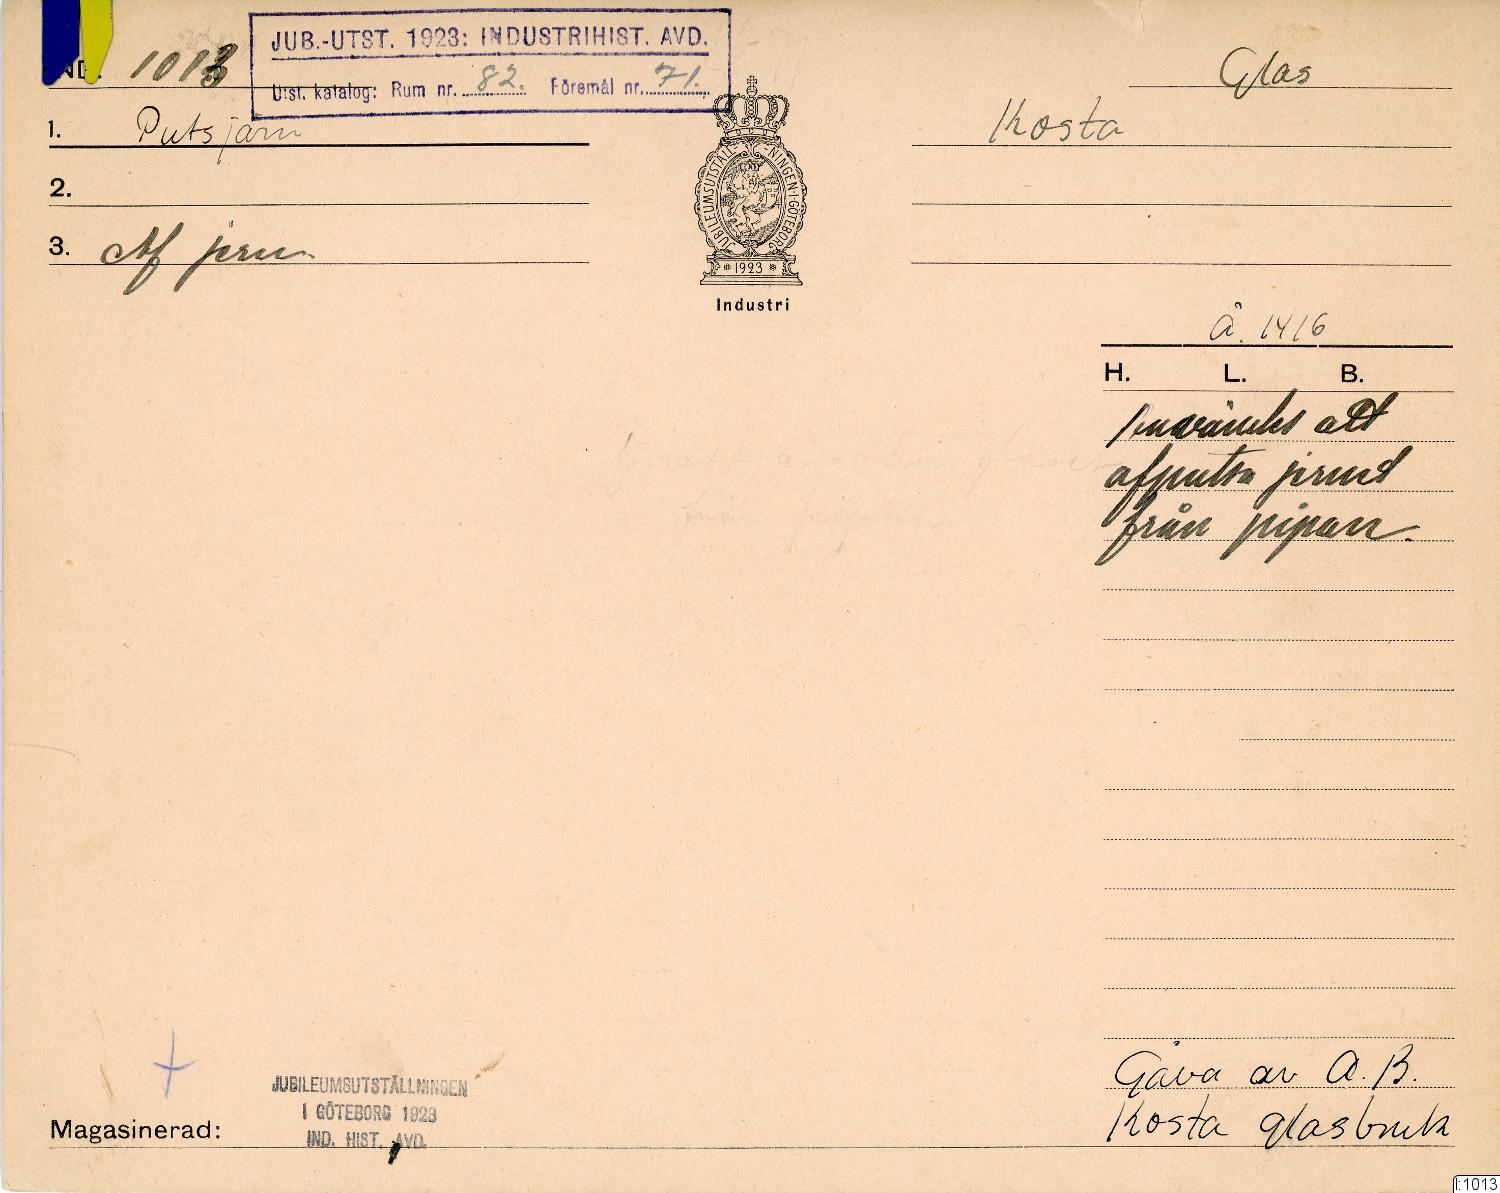 JUB.-UTST. 1923: INDUSTRIHIST. AVD.
IND. 1013
Utst. katalog: Rum nr. 82. Föremål nr. 71.
Glas
1. Putsjärn
Kosta
2.
3. Af jern
JUBILEUMSUTSTÄLL-NINGEN·I·GÖTEBORG
* 1923 *
Industri
Å. 1416
H. L. B.
användes att
afputsa jernet
från pipan.
Gåva av A.B.
Kosta glasbruk
JUBILEUMSUTSTÄLLNINGEN
I GÖTEBORG 1923
IND. HIST. AVD.
Magasinerad:
I:1013